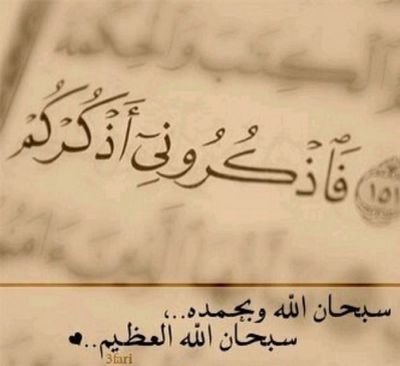 وَٱلْكِتَٰبَ وَٱلْحِكْمَةَ
١٥١ فَٱذْكُرُونِىٓ أَذْكُرْكُمْ
سبحان الله وبحمده..،
سبحان الله العظيم..♥
3fari